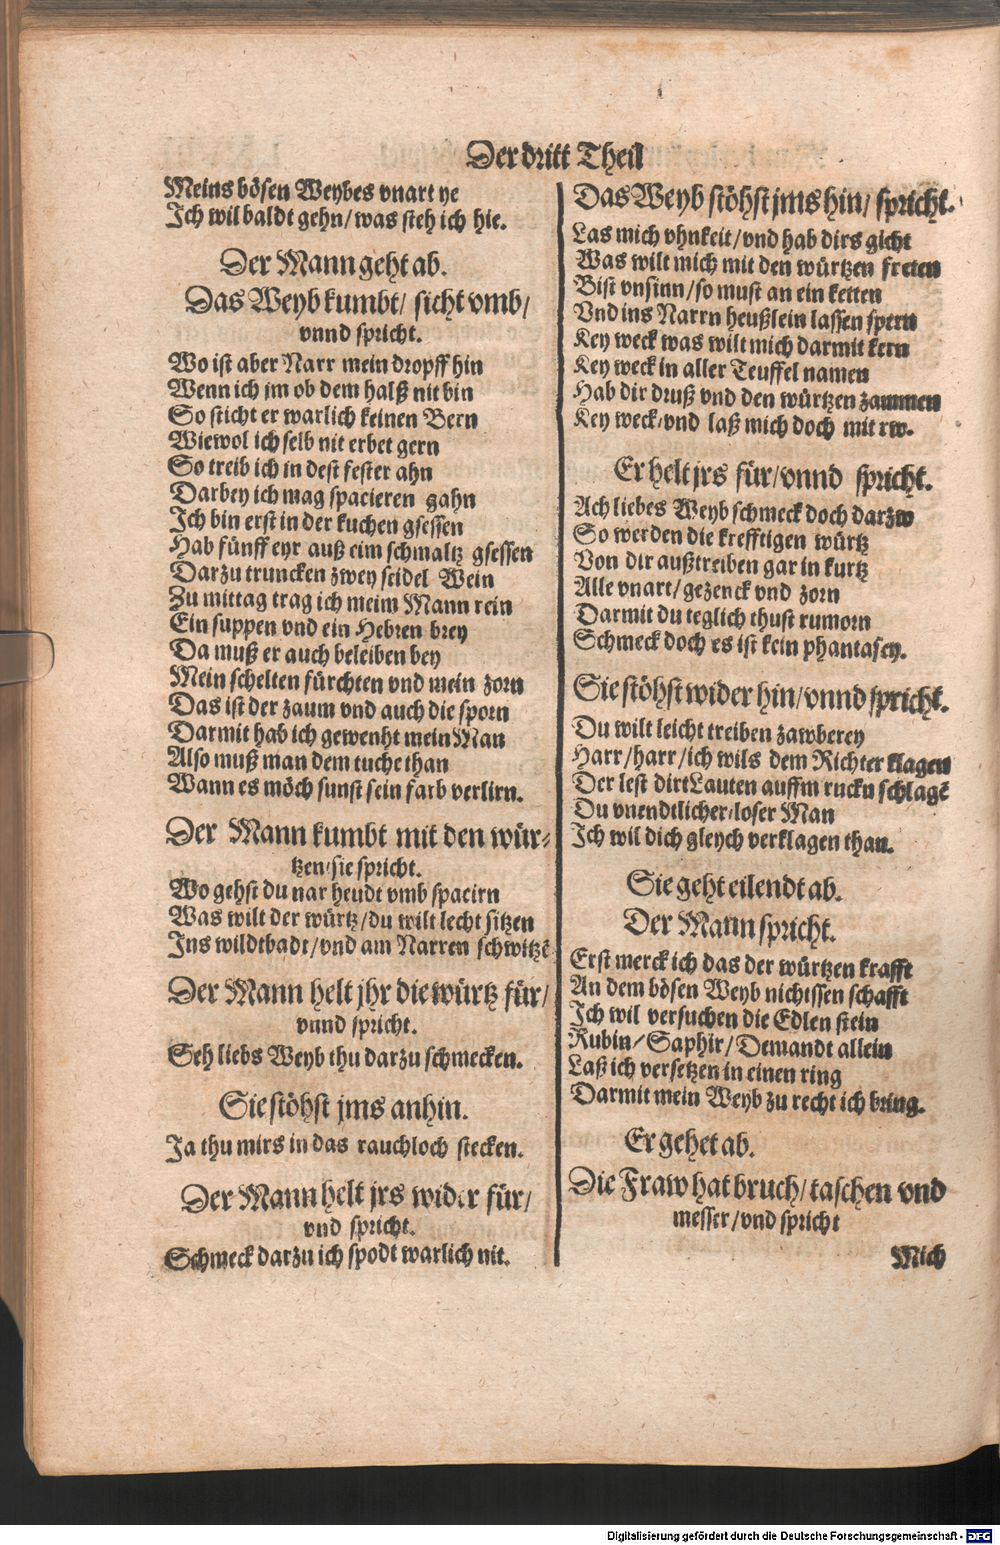 Der dritt Theil
Meins bösen Weybes vnart ye
Ich wil baldt gehn/was steh ich hie.
Der Mann geht ab.
Das Weyb kumbt/ sicht vmb/
vnnd spricht.
Wo ist aber Narr mein dropff hin
Wenn ich jm ob dem halß nit bin
So sticht er warlich keinen Bern
Wiewol ich selb nit erbet gern
So treib ich in dest fester ahn
Darbey ich mag spacieren gahn
Ich bin erst in der kuchen gsessen
Hab fünff eyr auß eim schmaltz gsessen
Darzu truncken zwey seidel Wein
Zu mittag trag ich meim Mann rein
Ein suppen vnd ein Hebren brey
Da muß er auch beleiben bey
Mein schelten fürchten vnd mein zorn
Das ist der zaum vnd auch die sporn
Darmit hab ich gewenht mein Man
Also muß man dem tuche than
Wann es möch sunst sein farb verlirn.
Der Mann kumbt mit den wür⸗
tzen/sie spricht.
Wo gehst du nar heudt vmb spacirn
Was wilt der würtz/du wilt lecht sitzen
Ins wildtbadt/vnd am Narren schwitzē
Der Mann helt jhr die würtz für/
vnnd spricht.
Seh liebs Weyb thu darzu schmecken.
Sie stöhst jms anhin.
Ja thu mirs in das rauchloch stecken.
Der Mann helt jrs wider für/
vnd spricht.
Schmeck darzu ich spodt warlich nit.
Das Weyb stöhst jms hin/ spricht.
Las mich vhnkeit/vnd hab dirs gicht
Was wilt mich mit den würtzen freten
Bist vnsinn/so must an ein ketten
Vnd ins Narrn heußlein lassen spern
Key weck was wilt mich darmit kern
Key weck in aller Teuffel namen
Hab dir druß vnd den würtzen zammen
Key weck/vnd laß mich doch mit rw.
Er helt jrs für/vnnd spricht.
Ach liebes Weyb schmeck doch darzw
So werden die krefftigen würtz
Von dir außtreiben gar in kurtz
Alle vnart/gezenck vnd zorn
Darmit du teglich thust rumorn
Schmeck doch es ist kein phantasey.
Sie stöhst wider hin/vnnd spricht.
Du wilt leicht treiben zawberey
Harr/harr/ich wils dem Richter klagen
Der lest dirt Lauten auffm ruckn schlagē
Du vnendtlicher/loser Man
Ich wil dich gleych verklagen than.
Sie geht eilendt ab.
Der Mann spricht.
Erst merck ich das der würtzen krafft
An dem bösen Weyb nichtssen schafft
Ich wil versuchen die Edlen stein
Rubin/Saphir/Demandt allein
Laß ich versetzen in einen ring
Darmit mein Weyb zu recht ich bring.
Er gehet ab.
Die Fraw hat bruch/taschen vnd
messer/vnd spricht
Mich
Digitalisierung gefördert durch die Deutsche Forschungsgemeinschaft - DFG